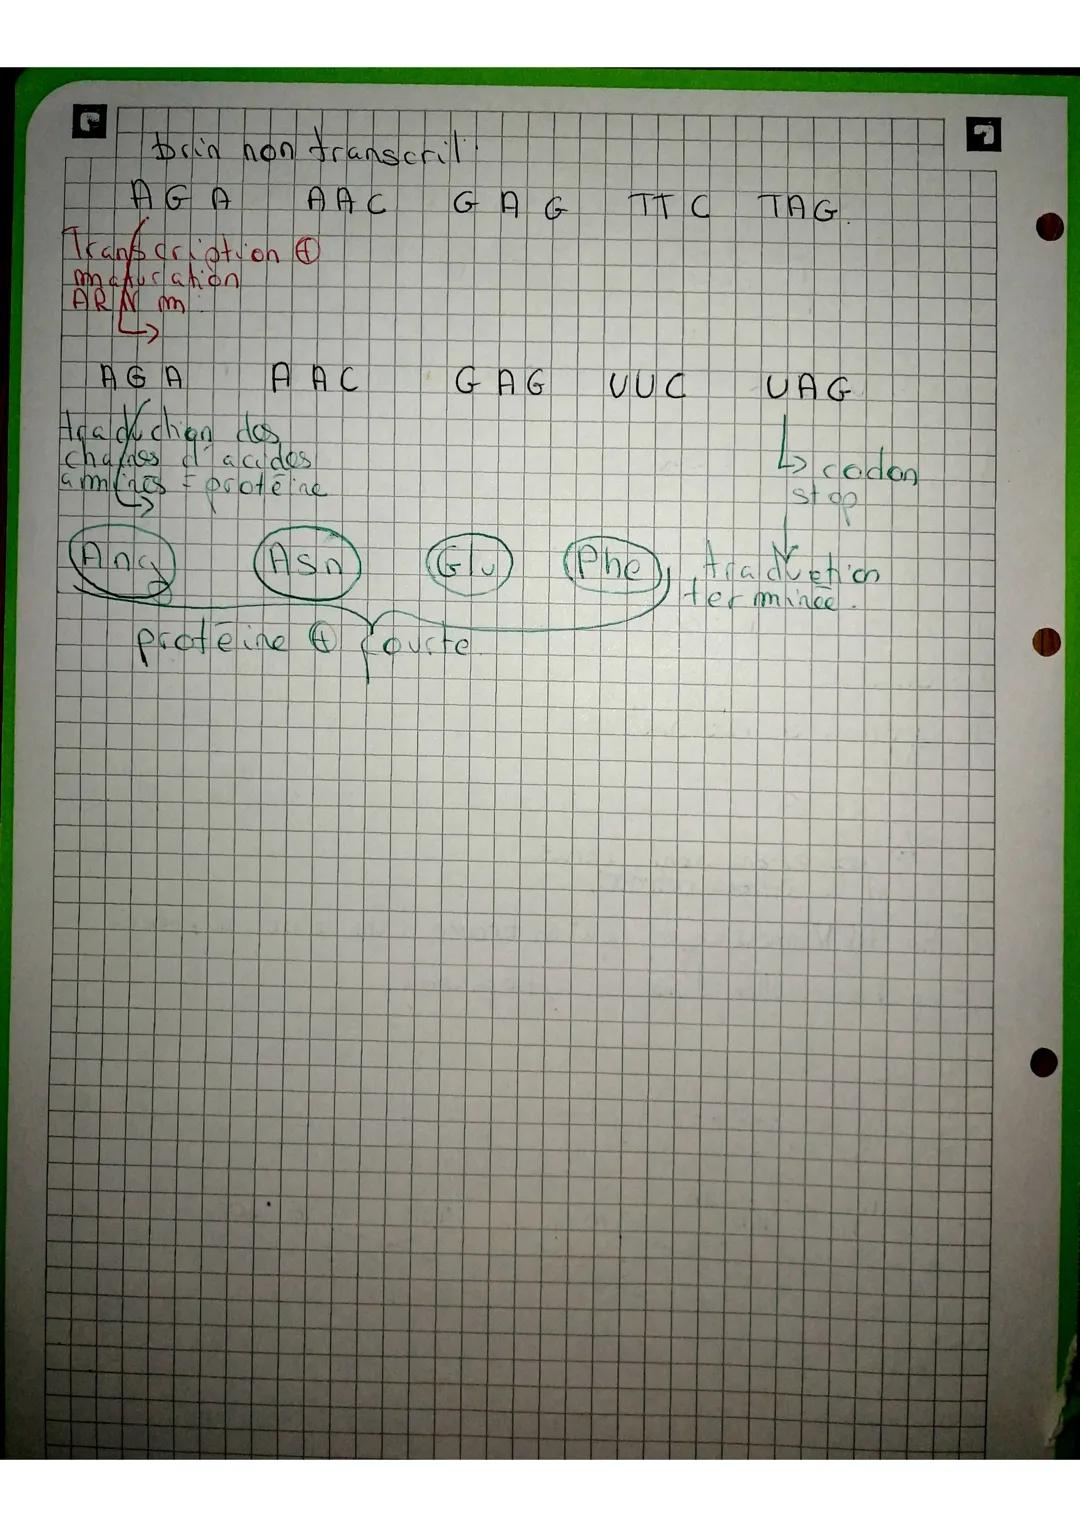 brin non transcrit
AGA AAC GAG TTC TAG.
Transcription ⊕
maturation
ARN m
AGA AAC GAG UUC UAG
traduction des
chaînes d'acides
aminés = protéine
codon
stop
Arg Asn Glu Phe, traduction
terminée.
protéine ⊕ courte